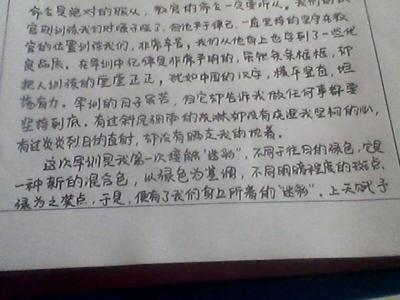 命令是绝对的服从，教官的命令一定要听从。我们的教
官训练我们时嗓子哑了，但他严于律己，一直坚持的坚守在教
官的位置训练我们，非常辛苦。我们从他身上也学到了一些优
良品质。在军训中纪律是非常严明的，条条框框，却
把人训练的堂堂正正，犹如中国的汉字，横平竖直，坦
荡有力。军训的日子虽苦，但它却告诉我做任何事都要
坚持到底。有过斜风细雨的凌淋却没有浇退我坚韧的心，
有过炎炎烈日的直射，却没有晒去我的执着。
这次军训是我第一次接触“迷彩”，不同于往日的绿色，它是
一种新的混合色，以绿色为基调，不同明暗程度的斑点、
绿为之装点，于是，便有了我们身上所着的“迷彩”。上天赋予